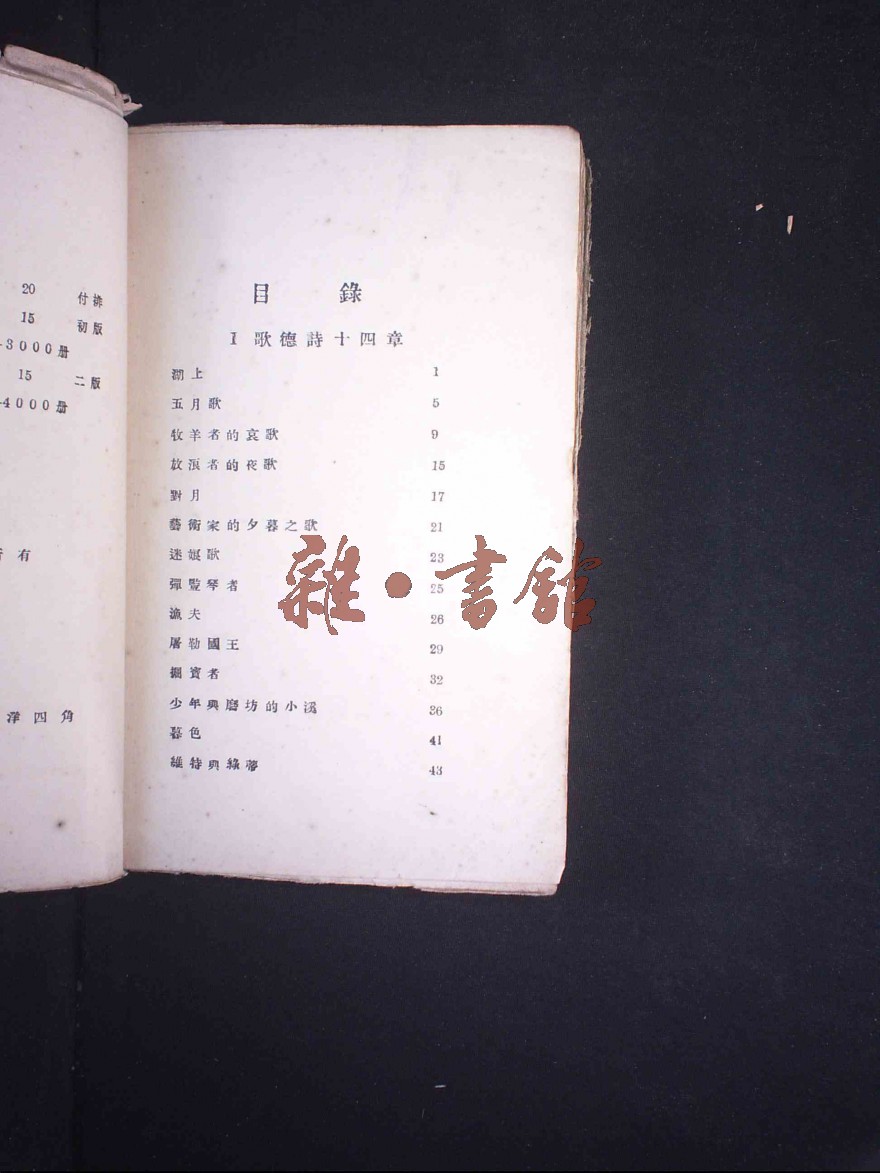 20 付排
15 初版
-3000册
15 二版
-4000册
有
洋四角
目 錄
I 歌德詩十四章
湖上 1
五月歌 5
牧羊者的哀歌 9
放浪者的夜歌 15
對月 17
藝術家的夕暮之歌 21
迷娘歌 23
彈豎琴者 25
漁夫 26
屠勒國王 29
掘寶者 32
少年與磨坊的小溪 36
暮色 41
維特與綠蒂 43
雜·書館